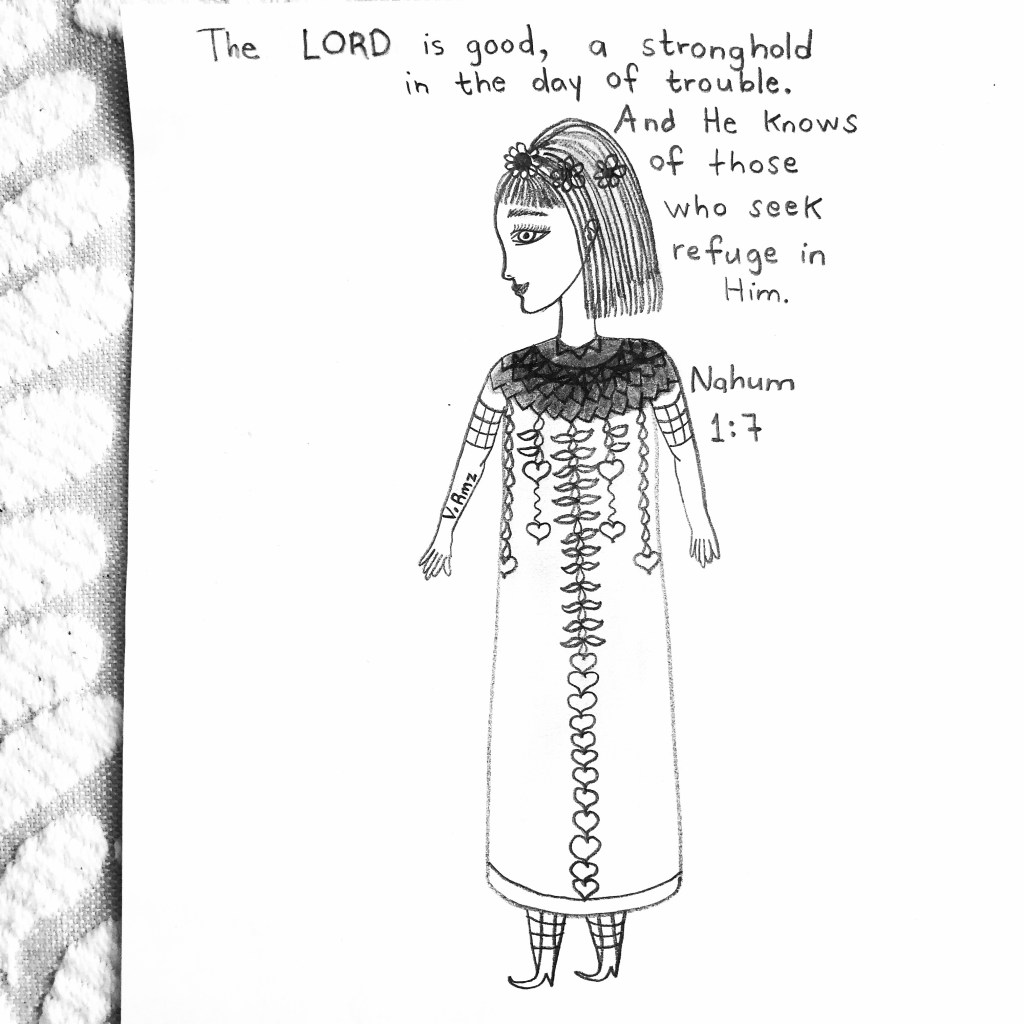 The LORD is good, a stronghold
in the day of trouble.
And He knows
of those
who seek
refuge in
Him.
Nahum
1:7
V. Rmz